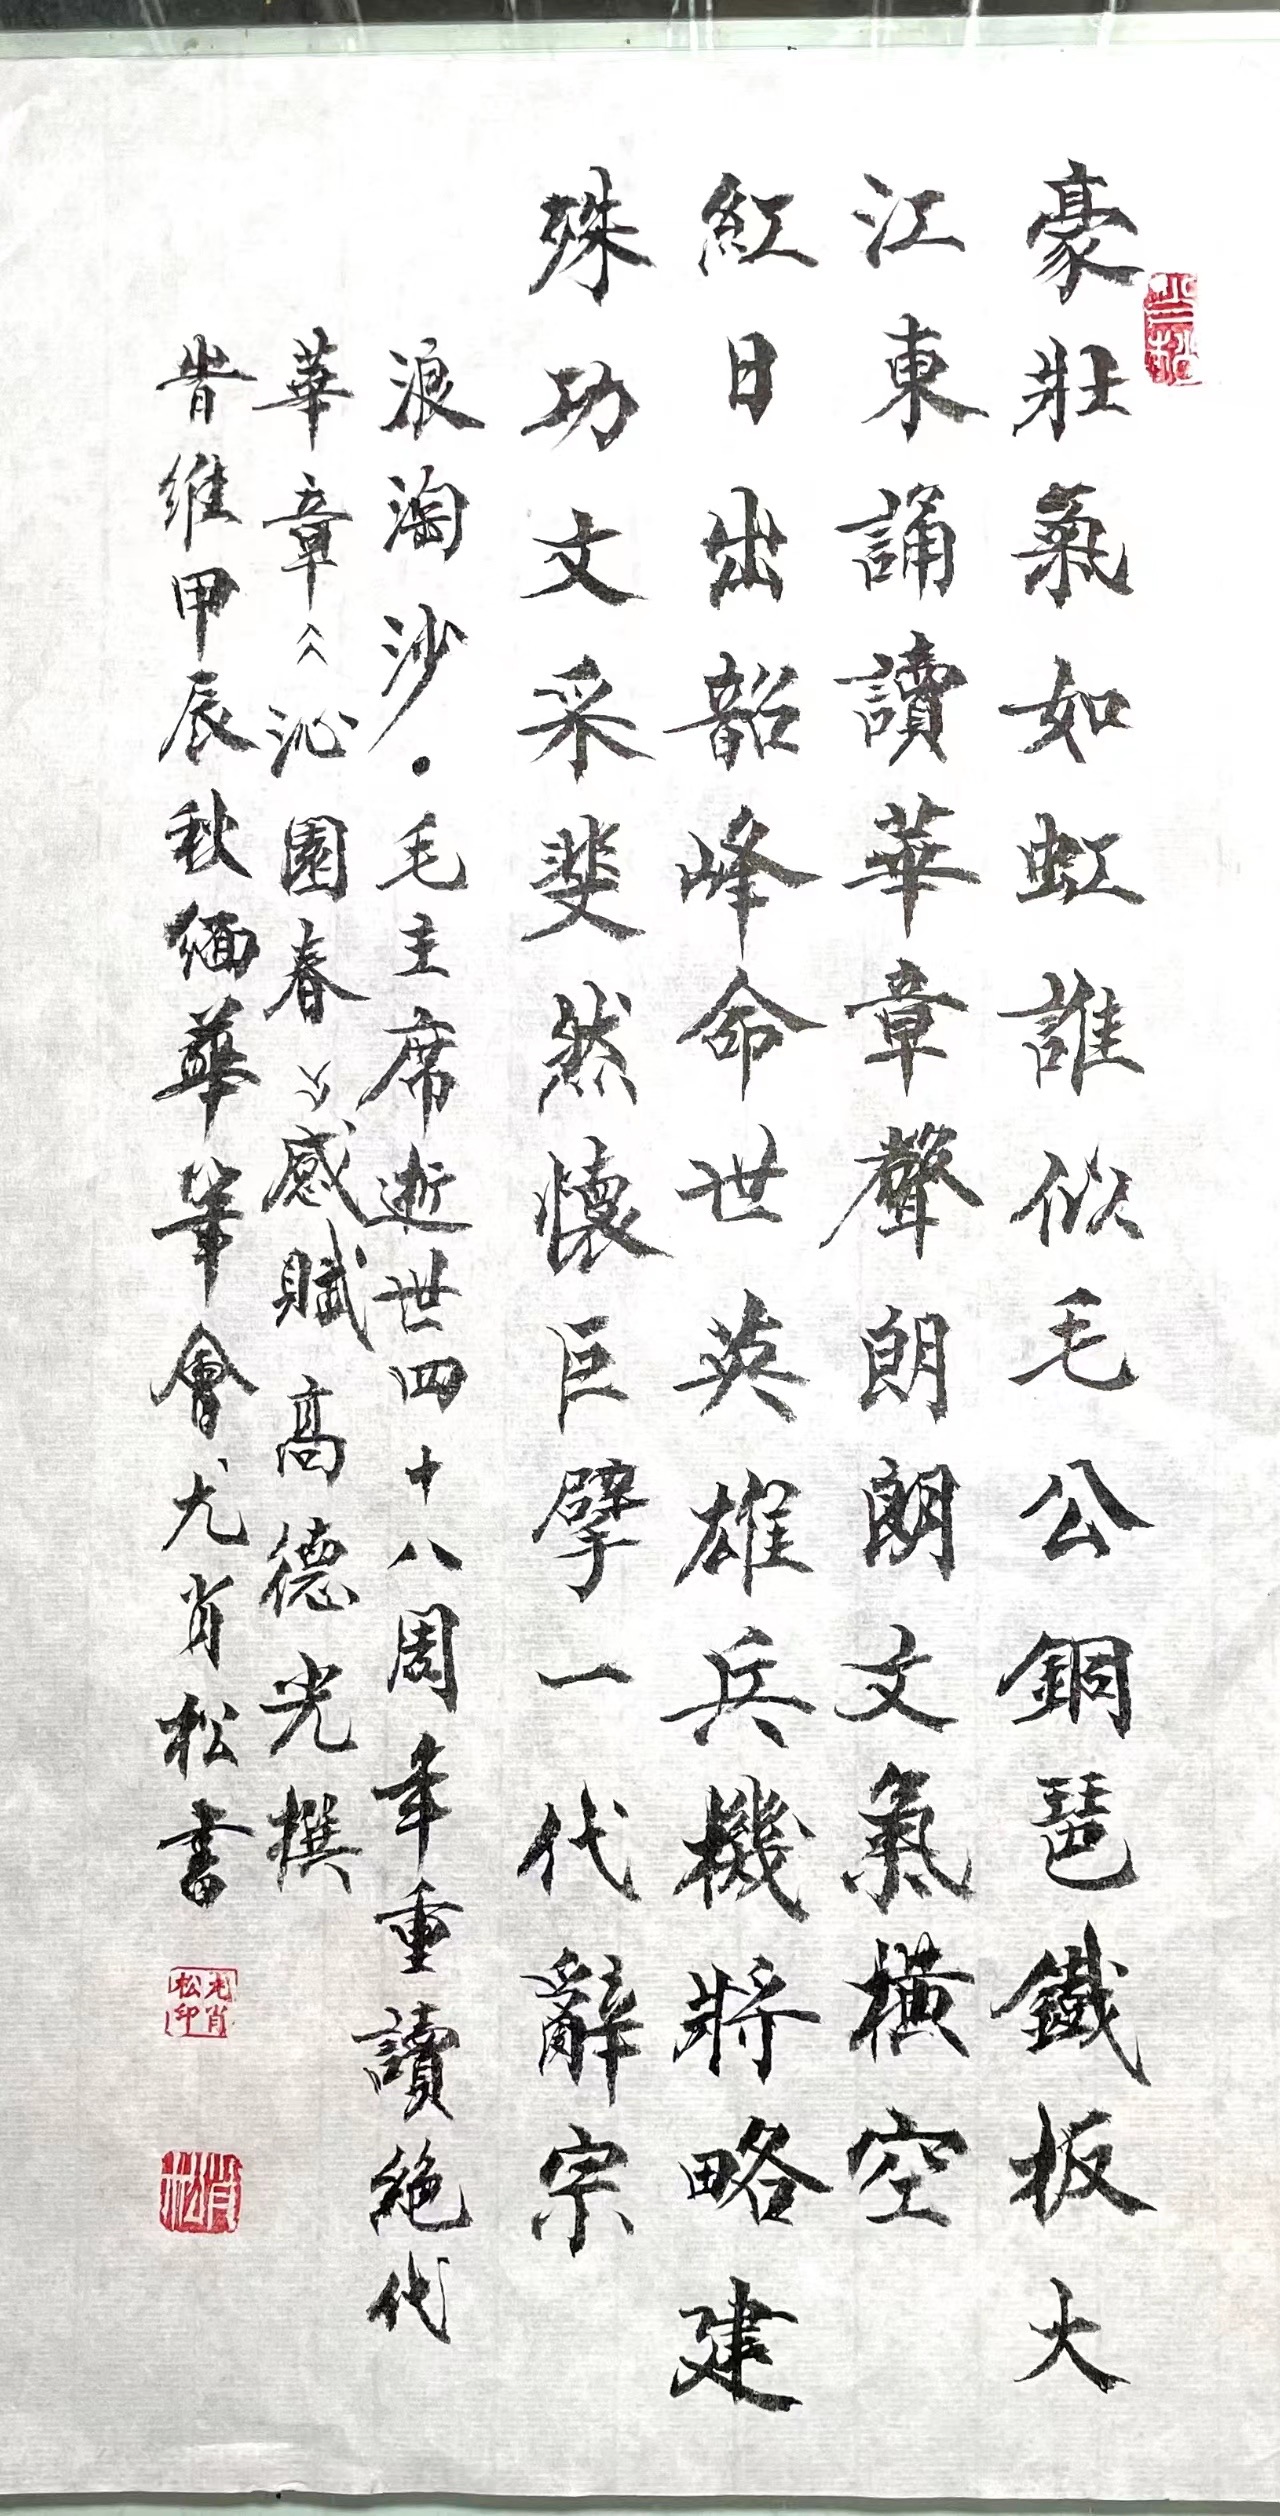 豪壯氣如虹誰似毛公銅琶鐵板大
江東誦讀華章聲朗朗文氣橫空
紅日出韶峰命世英雄兵機將略建
殊功文采斐然懷巨擘一代辭宗
浪淘沙·毛主席逝世四十八周年重讀絕代
華章《沁園春》感賦高德光撰
旹維甲辰秋緬華筆會尤肖松書
尤肖松印
肖松